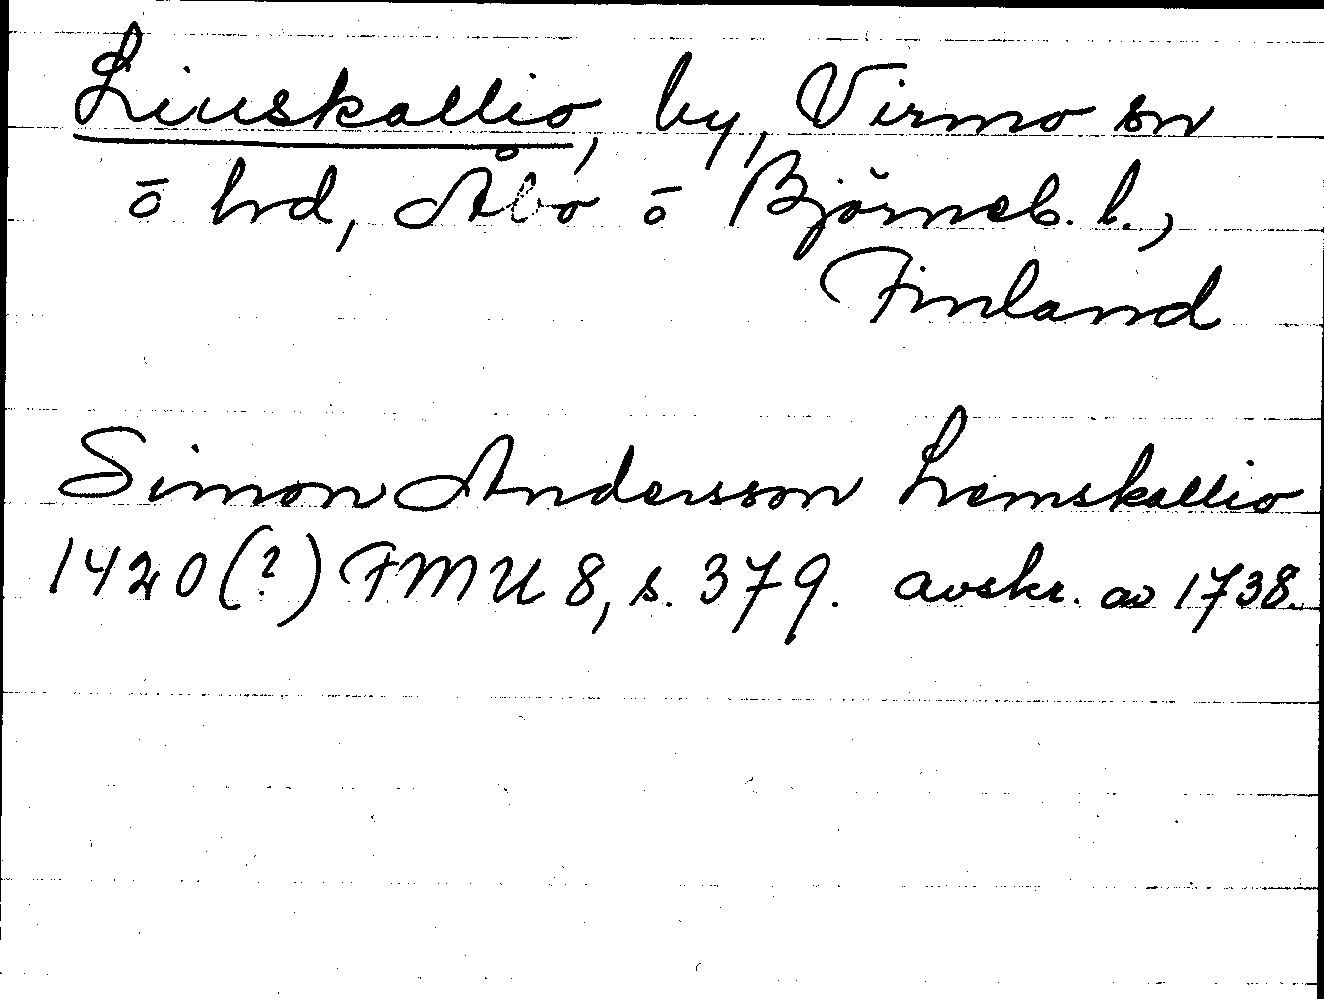 Liuskallio, by, Virmo sn
o hrd, Åbo o Björneb. l.,
Finland
Simon Andersson Lemskallio
1420(?) FMU 8, s. 379. avskr. av 1738.